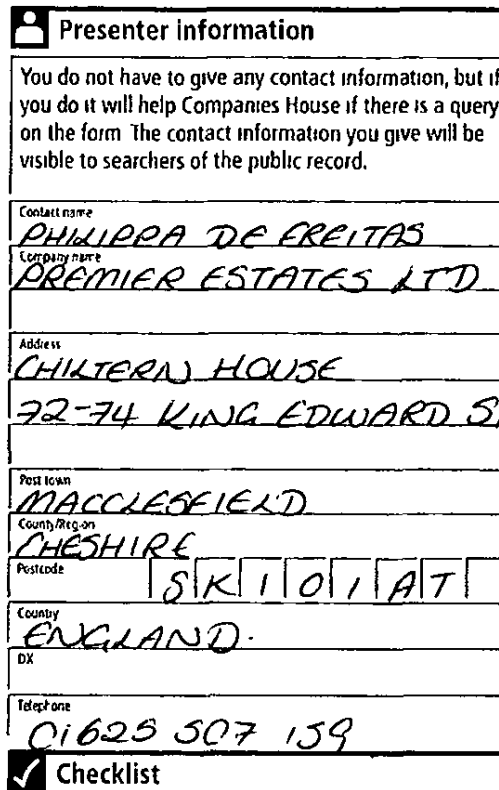 Presenter information
You do not have to give any contact information, but if
you do it will help Companies House if there is a query
on the form The contact information you give will be
visible to searchers of the public record.
Contact name
PHILIPPA DE FREITAS
Company name
PREMIER ESTATES LTD
Address
CHILTERN HOUSE
72-74 KING EDWARD S
Post town
MACCLESFIELD
County/Region
CHESHIRE
Postcode
SK101AT
Country
ENGLAND.
DX
Telephone
01625 507 159
Checklist